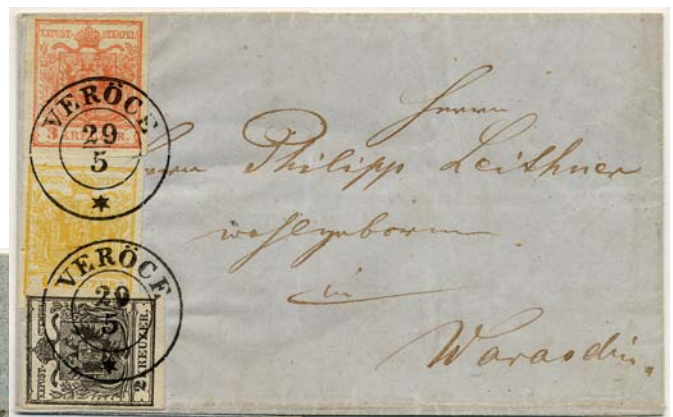 KKPOST-STEMPEL
3 KREUZER.
VERÖCE
29
5
VERÖCE
29
5
KKPOST-STEMPEL
2 KREUZER.
Herrn
Herrn Philipp Leithner
wohlgeboren
in
Warasdin.